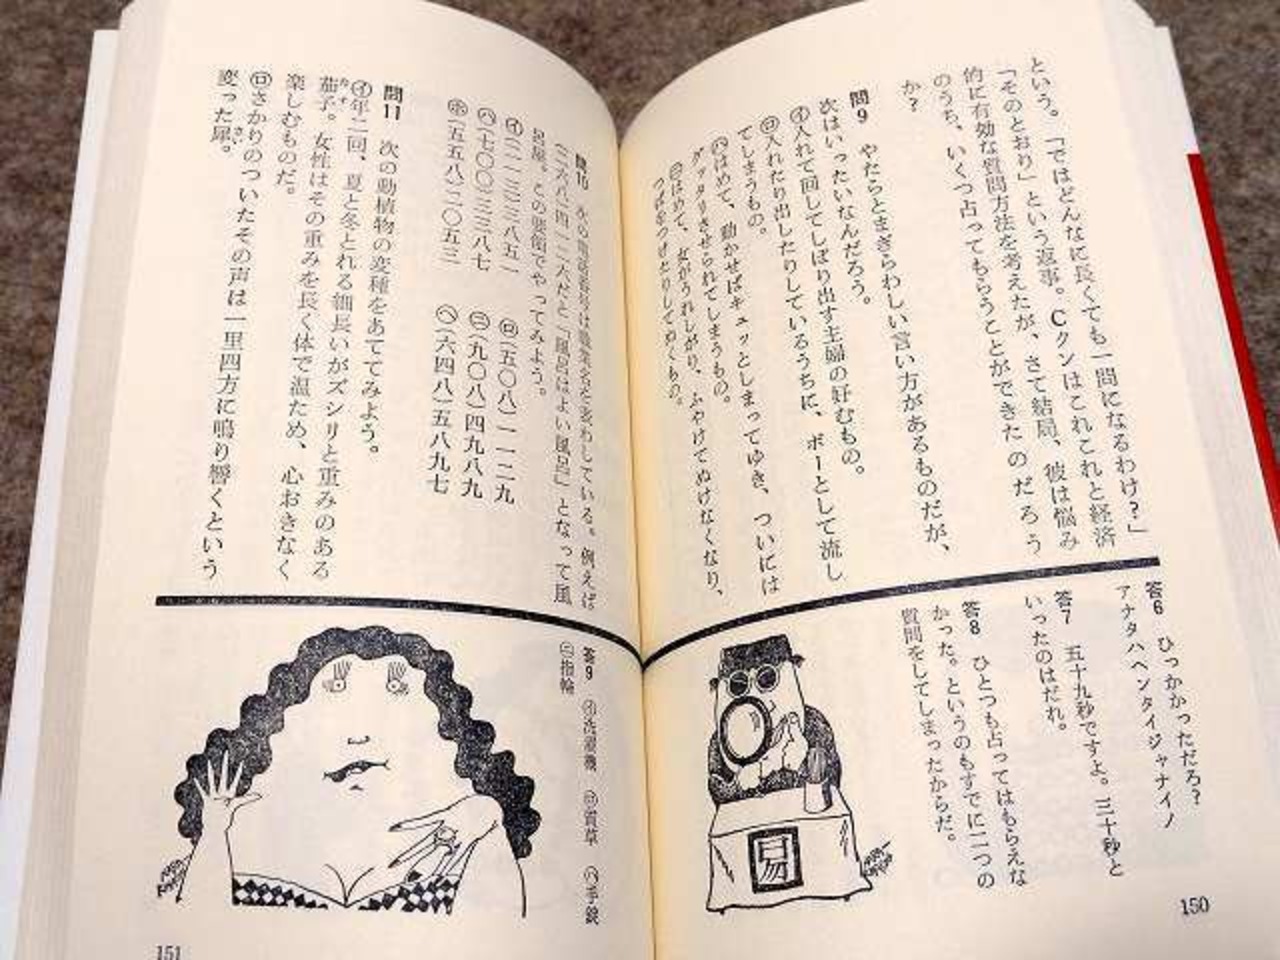 という。「ではどんなに長くても一問になるわけ？」
「そのとおり」という返事。Cクンはこれこれと経済
的に有効な質問方法を考えたが、さて結局、彼は悩み
のうち、いくつ占ってもらうことができたのだろう
か？
問9　やたらとまぎらわしい言い方があるものだが、
次はいったいなんだろう。
㋑入れて回してしぼり出す主婦の好むもの。
㋺入れたり出したりしているうちに、ボーとして流し
てしまうもの。
㋩はめて、動かせばキュッとしまってゆき、ついには
グッタリさせられてしまうもの。
㋥はめて、女がうれしがり、ふやけてぬけなくなり、
つばをつけたりしてぬくもの。
答6　ひっかかっただろ？
アナタハヘンタイジャナイノ
答7　五十九秒ですよ。三十秒と
いったのはだれ。
答8　ひとつも占ってはもらえな
かった。というのもすでに二つの
質問をしてしまったからだ。
易
150
問10　次の電話番号は職業名を表わしている。例えば
(二六八)四一二六だと「風呂はよい風呂」となって風
呂屋。この要領でやってみよう。
㋑(二一三)三八五一
㋺(五〇八)一一二九
㋩(七〇〇)三三八七
㋥(九〇八)四九八九
㋭(五五八)二〇五三
㋬(六四八)五八九七
問11　次の動植物の変種をあててみよう。
㋑年二回、夏と冬とれる細長いがズシリと重みのある
茄子。女性はその重みを長く体で温ため、心おきなく
楽しむものだ。
㋺さかりのついたその声は一里四方に鳴り響くという
変った犀。
答9　㋑洗濯機　㋺質草　㋩手錠
㋥指輪
151